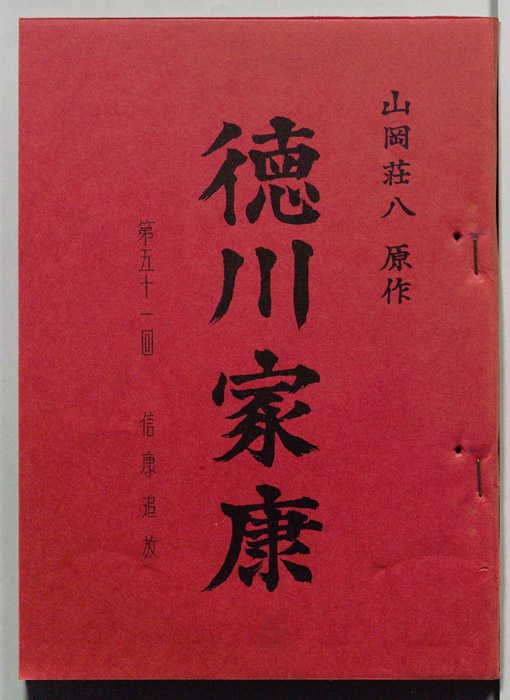 山岡荘八 原作
徳川家康
第五十一回 信康追放